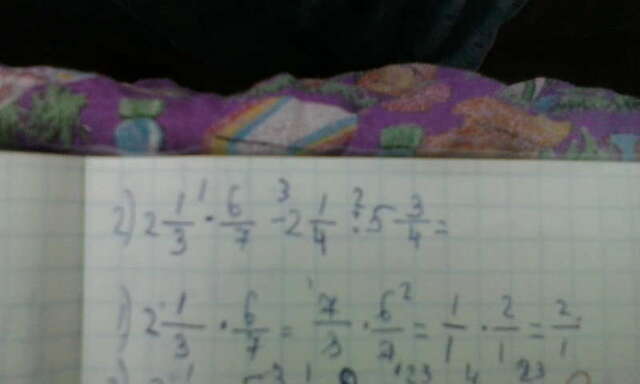 2) 2 1/3 · 6/7 - 2 1/4 : 5 3/4 =
1) 2 1/3 · 6/7 = 7/3 · 6/7 = 1/1 · 2/1 = 2/1